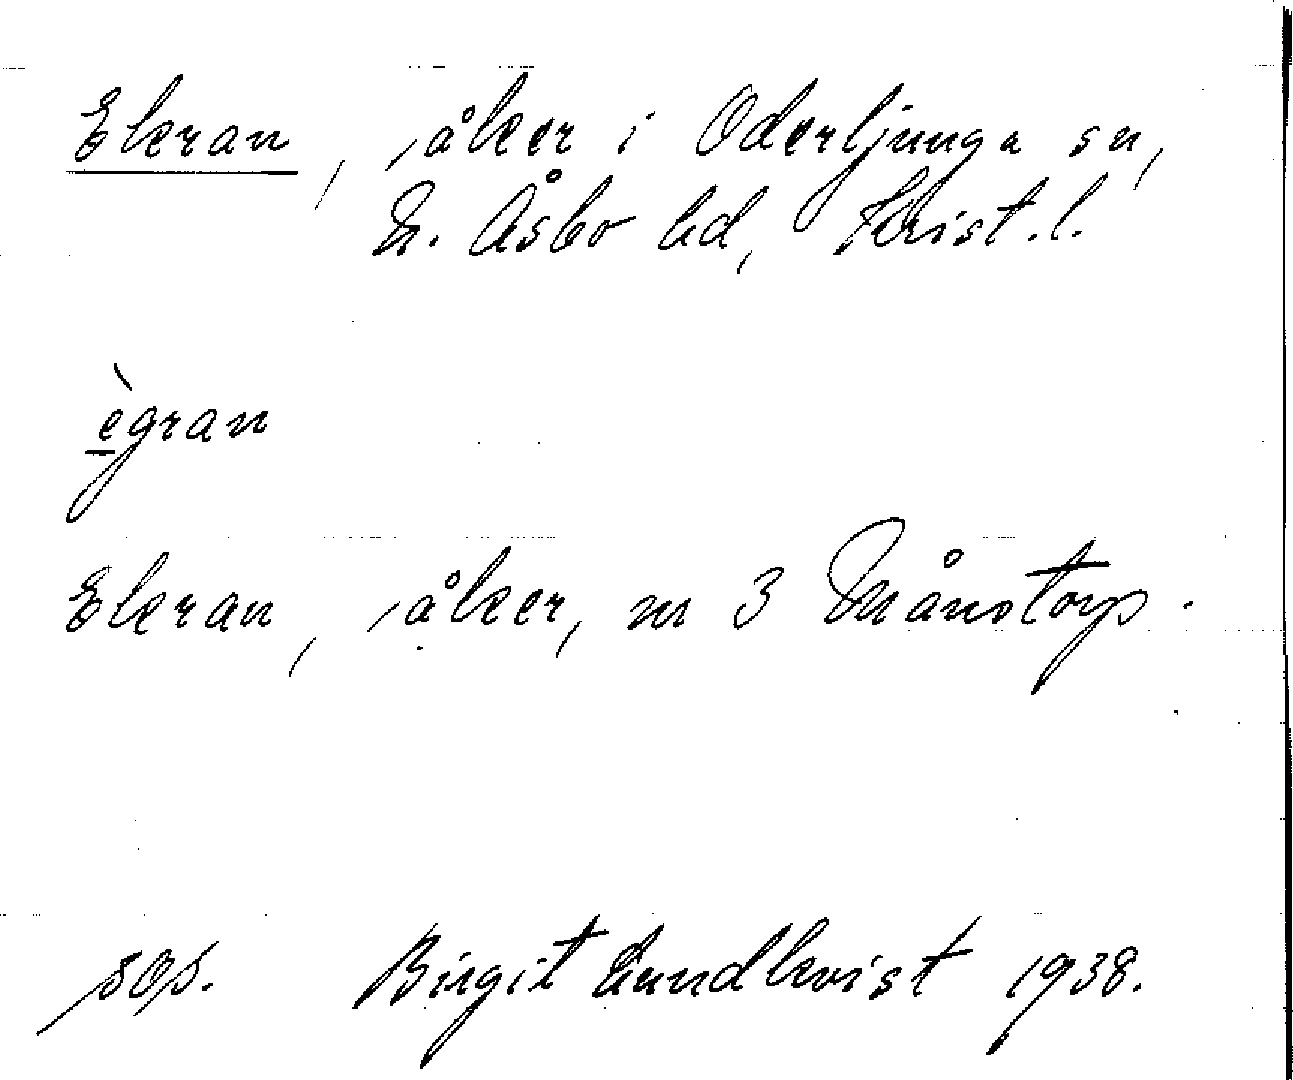 Ekran, åker i Oderljunga sn,
N. Åsbo hd, Krist. l.
ègran
Ekran, åker, nr 3 Månstorp.
sop. Birgit Lundkvist 1938.